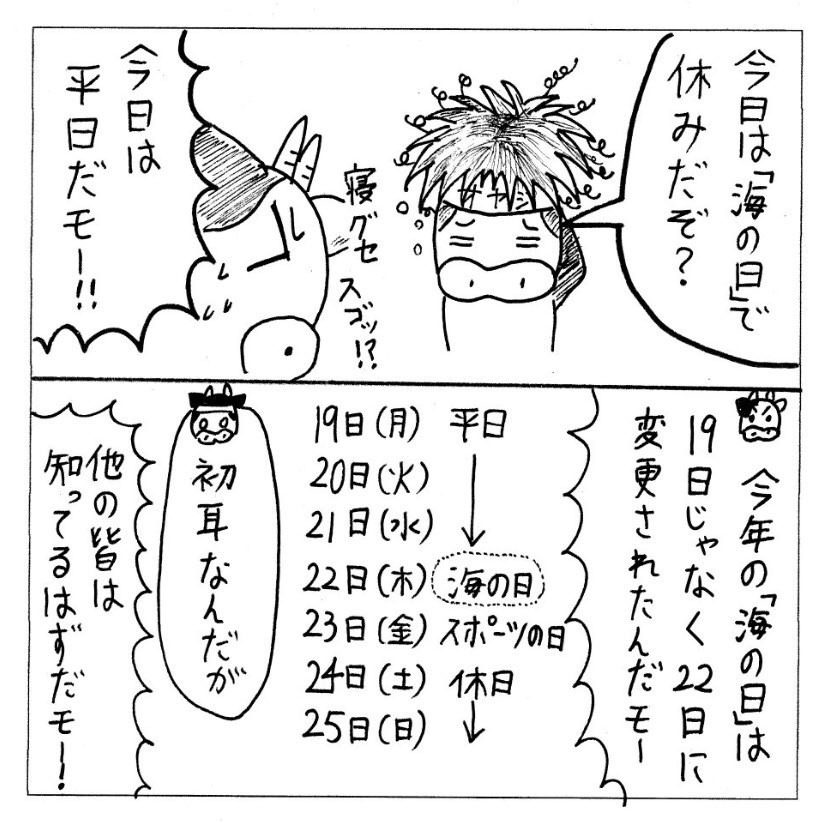 今日は「海の日」で
休みだぞ?
サヤシ
寝グセ
スゴッ!?
今日は
平日だモー!!
今年の「海の日」は
19日じゃなく22日に
変更されたんだモー
19日(月) 平日
20日(火)
21日(水)
22日(木) 海の日
23日(金) スポーツの日
24日(土) 休日
25日(日)
初耳なんだが
他の皆は
知ってるはずだモー!